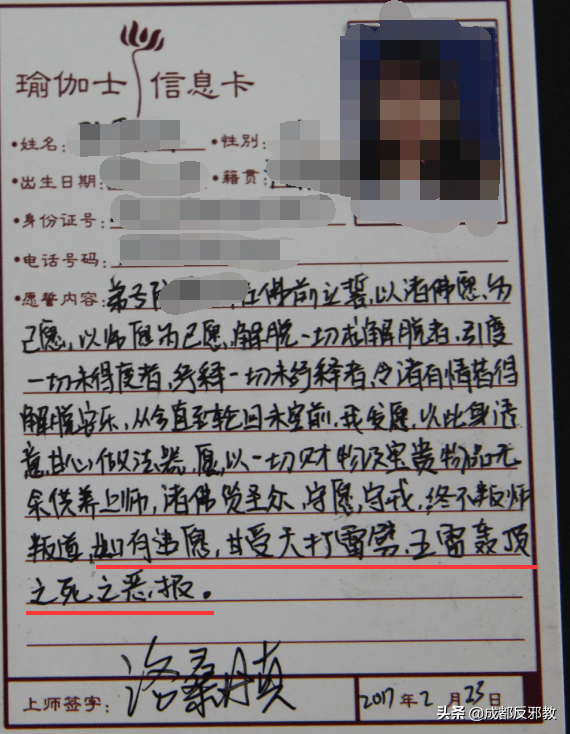 瑜伽士 信息卡
•姓名: •性别:
•出生日期: •籍贯:
•身份证号:
•电话号码:
•愿誓内容: 弟子 在佛前立誓,以诸佛愿为
己愿,以师愿为己愿,解脱一切未解脱者,引度
一切未得度者,终释一切未终释者,令诸有情皆得
解脱安乐,从今直至轮回未空前,我发愿,以此身语
意,甘心做法器,愿以一切财物及宝贵物品无
余供养上师,诸佛贤圣众,守愿,守戒,终不叛师
叛道,如有违愿,甘受天打雷劈,五雷轰顶
之死之恶报。
上师签字: 洛桑丹真 2017年2月23日
头条 @成都反邪教